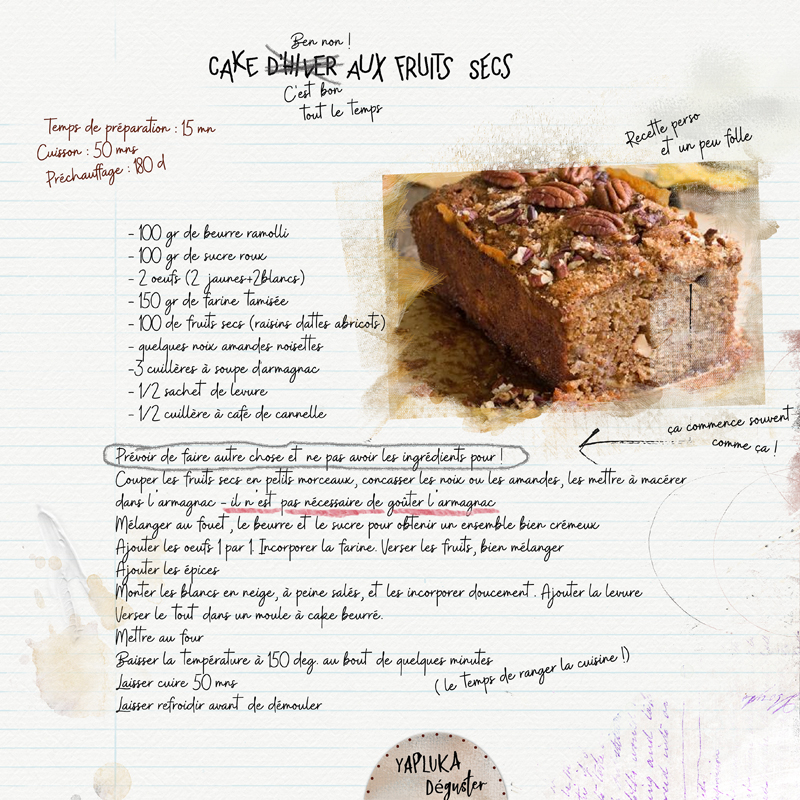 Ben non !
CAKE D'HIVER AUX FRUITS SECS
C'est bon
tout le temps
Temps de préparation : 15 mn
Cuisson : 50 mns
Préchauffage : 180 d
Recette perso
et un peu folle
- 100 gr de beurre ramolli
- 100 gr de sucre roux
- 2 oeufs (2 jaunes+2blancs)
- 150 gr de farine tamisée
- 100 de fruits secs (raisins dattes abricots)
- quelques noix amandes noisettes
-3 cuillères à soupe d'armagnac
- 1/2 sachet de levure
- 1/2 cuillère à café de cannelle
ça commence souvent
comme ça !
Prévoir de faire autre chose et ne pas avoir les ingrédients pour !
Couper les fruits secs en petits morceaux, concasser les noix ou les amandes, les mettre à macérer
dans l'armagnac - il n'est pas nécessaire de goûter l'armagnac
Mélanger au fouet, le beurre et le sucre pour obtenir un ensemble bien crémeux
Ajouter les oeufs 1 par 1. Incorporer la farine. Verser les fruits, bien mélanger
Ajouter les épices
Monter les blancs en neige, à peine salés, et les incorporer doucement . Ajouter la levure
Verser le tout dans un moule à cake beurré.
Mettre au four
Baisser la température à 150 deg. au bout de quelques minutes
( le temps de ranger la cuisine !)
Laisser cuire 50 mns
Laisser refroidir avant de démouler
YAPLUKA
Déguster